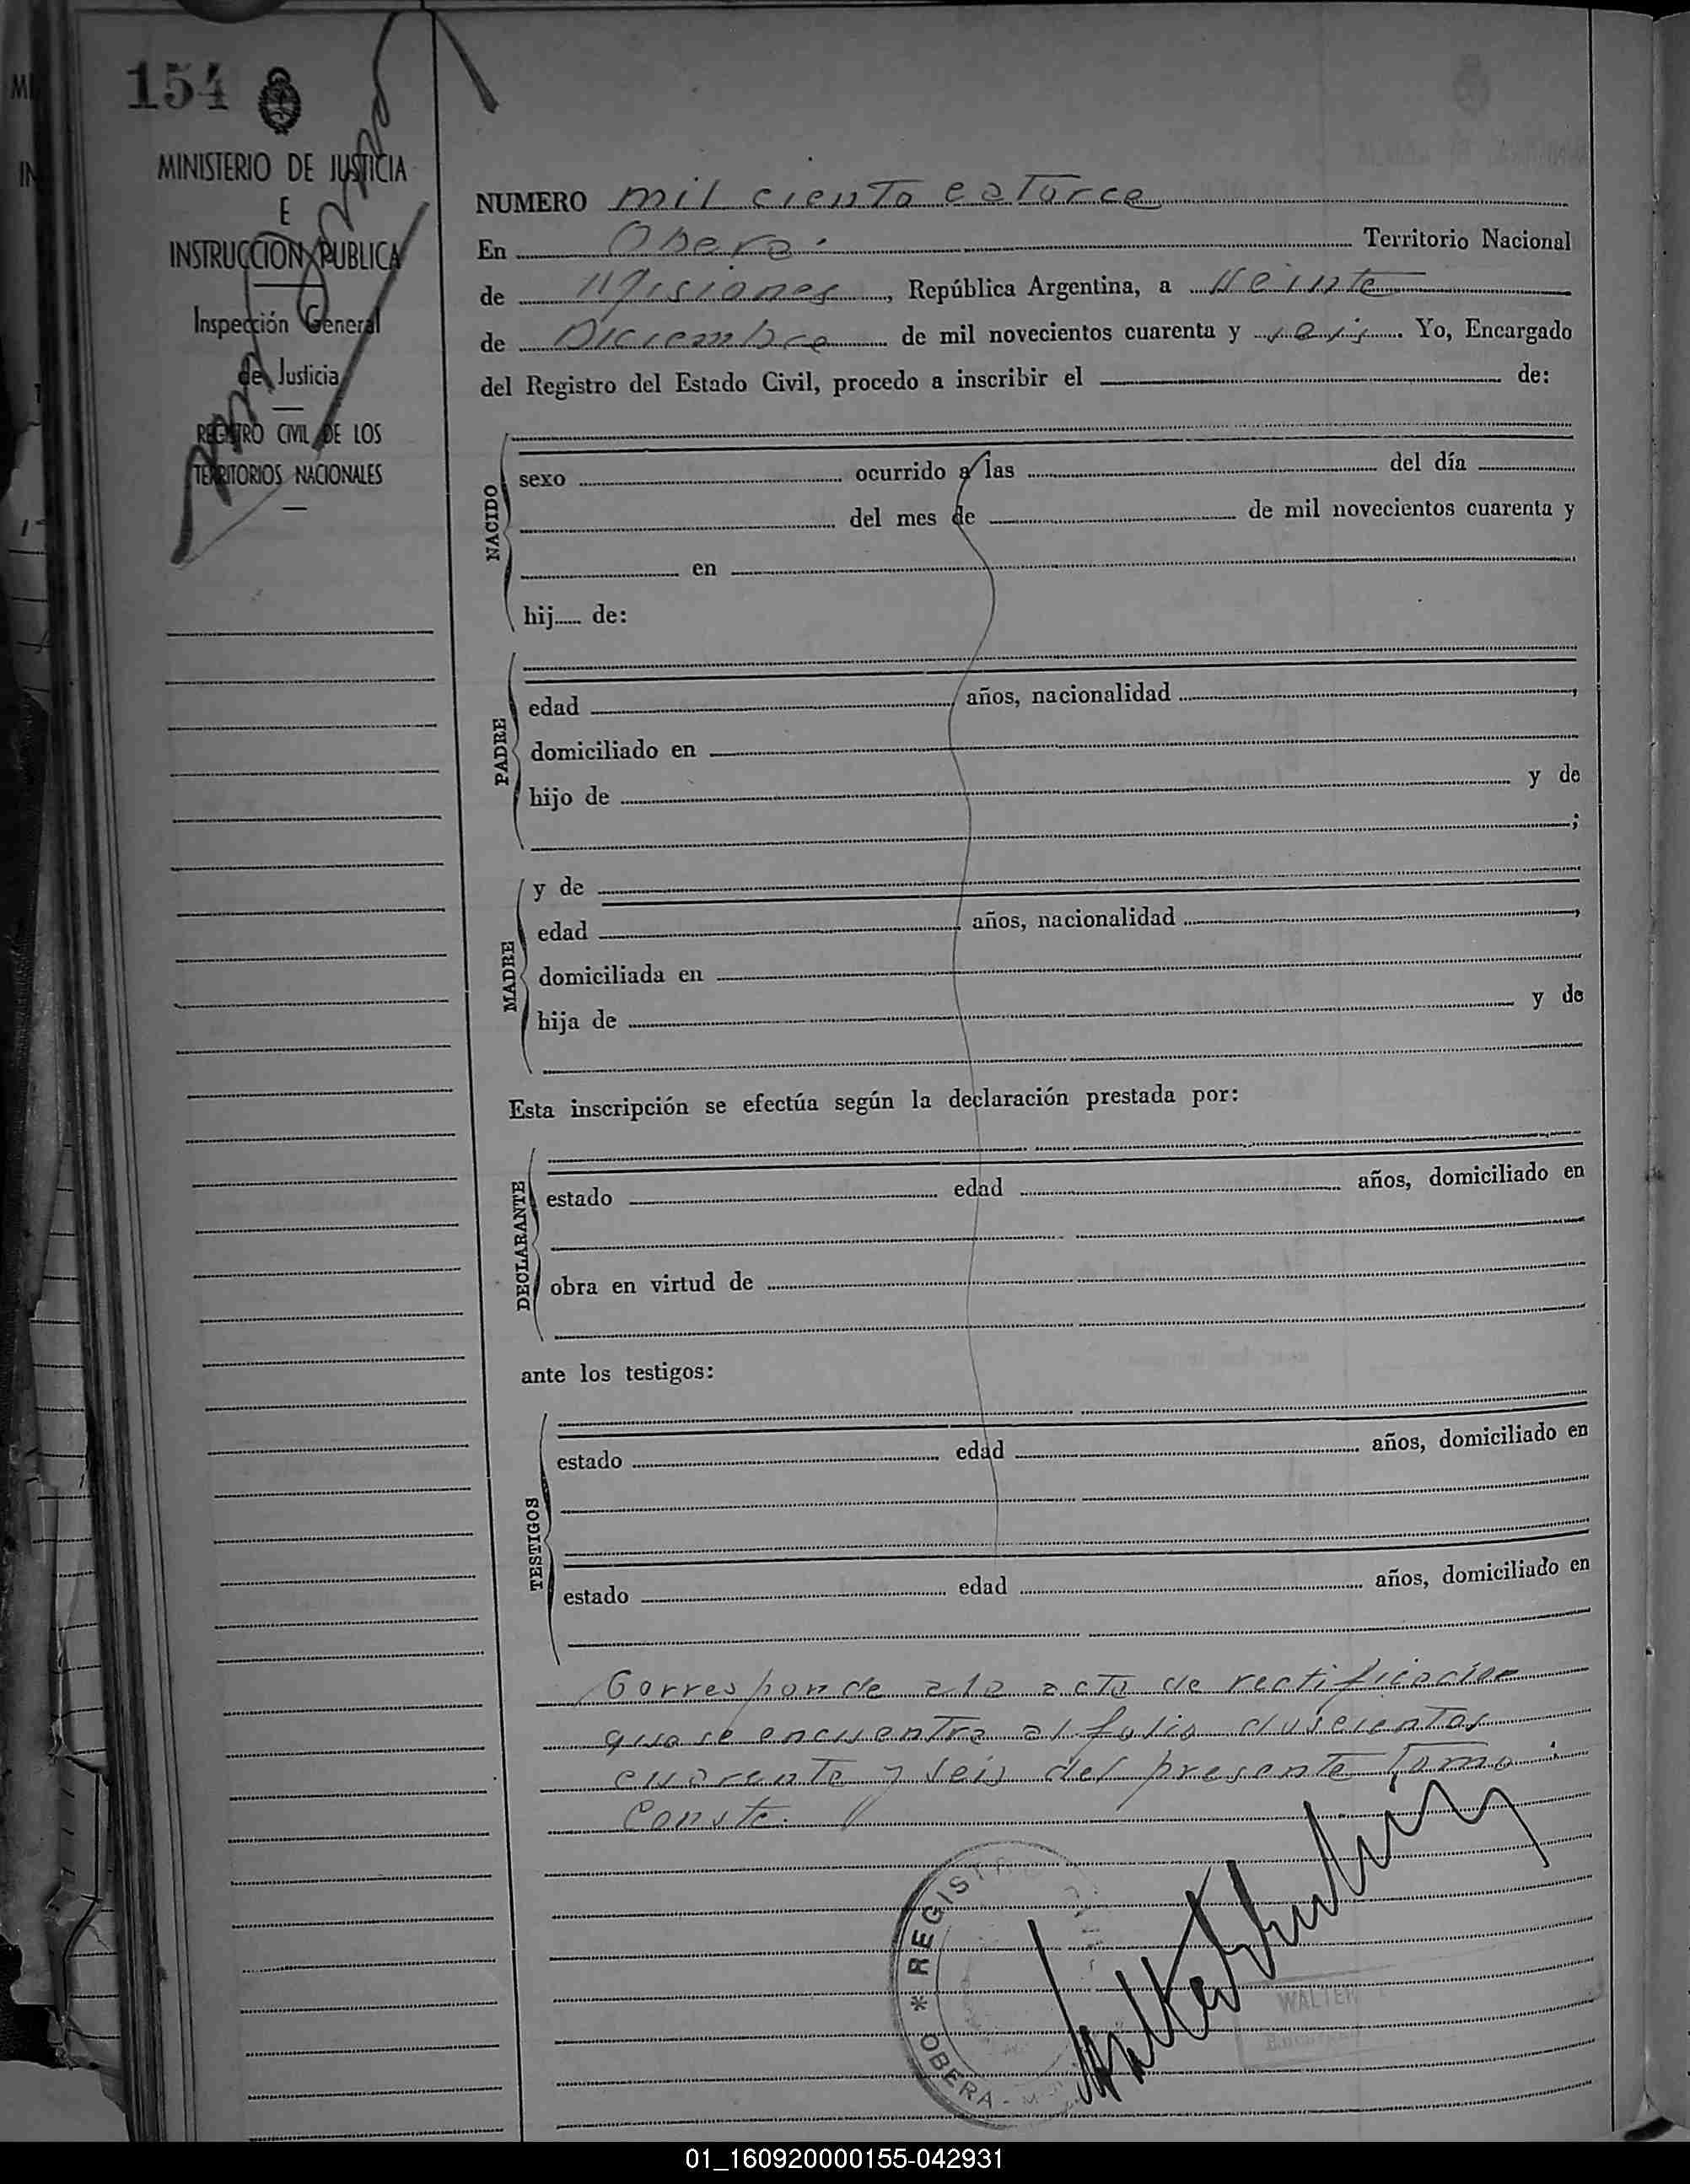 154
MINISTERIO DE JUSTICIA
E
INSTRUCCION PUBLICA
Inspección General
de Justicia
REGISTRO CIVIL DE LOS
TERRITORIOS NACIONALES
NUMERO mil ciento catorce
En Obera. Territorio Nacional
de Misiones, República Argentina, a Veinte
de Diciembre de mil novecientos cuarenta y seis. Yo, Encargado
del Registro del Estado Civil, procedo a inscribir el de:
NACIDO
sexo ocurrido a las del día
del mes de de mil novecientos cuarenta y
en
hij de:
PADRE
edad años, nacionalidad ,
domiciliado en
hijo de y de
;
MADRE
y de
edad años, nacionalidad ,
domiciliada en
hija de y de
Esta inscripción se efectúa según la declaración prestada por:
DECLARANTE
estado edad años, domiciliado en
obra en virtud de
ante los testigos:
TESTIGOS
estado edad años, domiciliado en
estado edad años, domiciliado en
Corresponde a la acta de rectificación
que se encuentra al folio duscientos
cuarenta y seis del presente Tomo.
Conste.
* REGIST
OBERA - M
WALTER
01_160920000155-042931